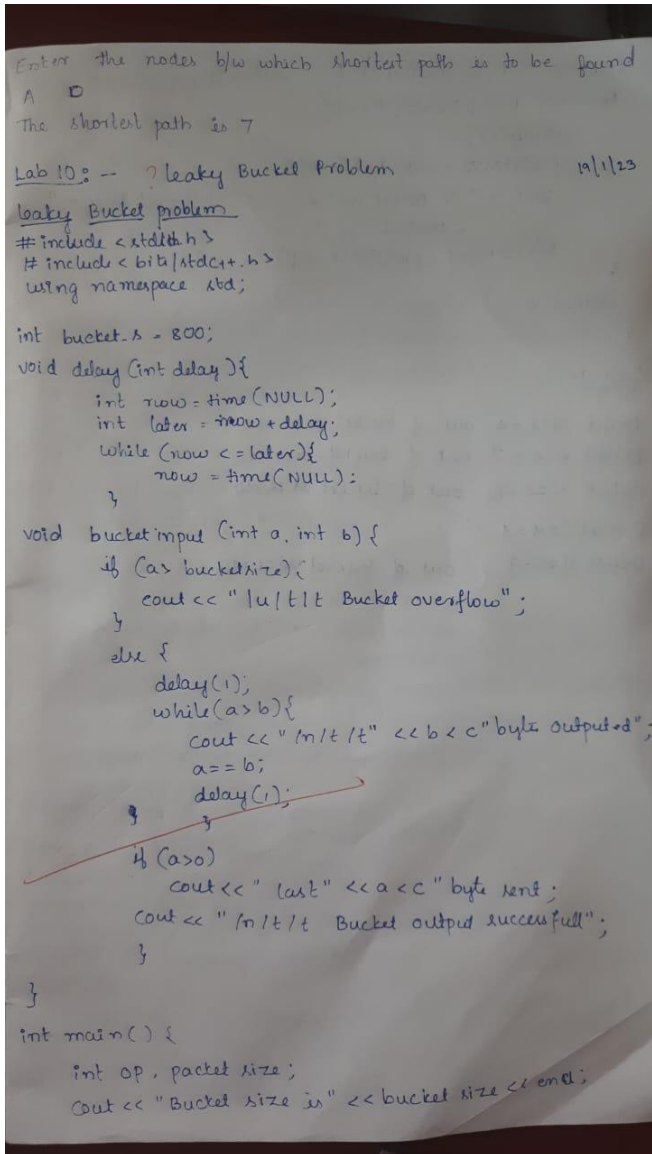 Enter the nodes b/w which shortest path is to be found
A D
The shortest path is 7
Lab 10: - ? Leaky Bucket Problem 19/1/23
Leaky Bucket problem
#include <stdlib.h>
# include < bits/stdc++.h>
using namespace std;
int bucket_s = 800;
void delay (int delay){
int now = time(NULL);
int later = now + delay;
while (now <= later){
now = time(NULL);
}
void bucketinput (int a, int b) {
if (a> bucketsize){
cout << "/u/t/t Bucket overflow";
}
else {
delay(1);
while(a>b){
cout << "/n/t/t" << b < c "byte outputed";
a == b;
delay(1);
}
}
if (a>0)
cout << " last" << a < c "byte sent;
cout << "/n/t/t Bucket output successfull";
}
}
int main() {
int op, packet size;
cout << "Bucket size is" << bucket size << end;